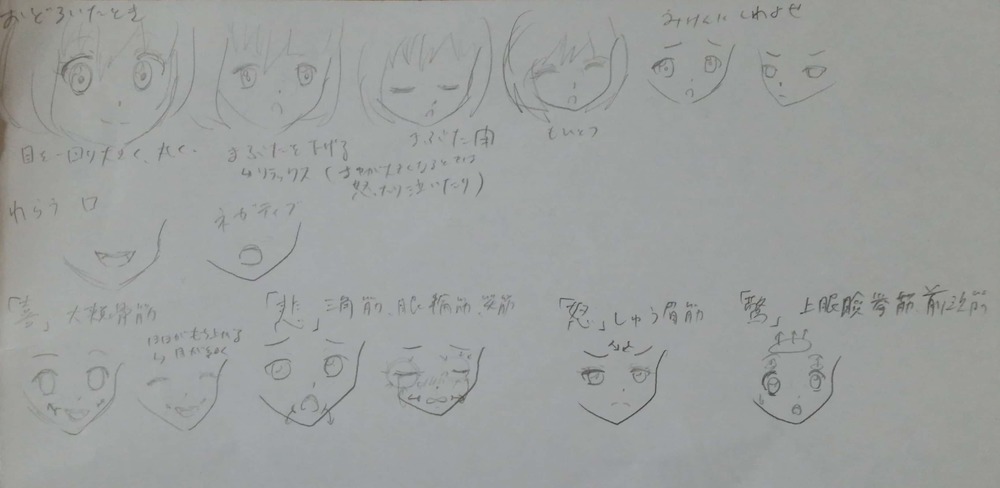 おどろいたとき
みけんにしわよせ
目を一回り大きく、丸く、
まぶたを下げる
↳リラックス（さゆれが大きくなるときは
怒ったり泣いたり）
まぶた閉
わらう口
ネガティブ
「喜」大頬骨筋
ほほがもち上がる
↳目が細く
「悲」三角筋、眼輪筋、笑筋
「怒」しゅう眉筋
「驚」上眼瞼挙筋、前頭筋